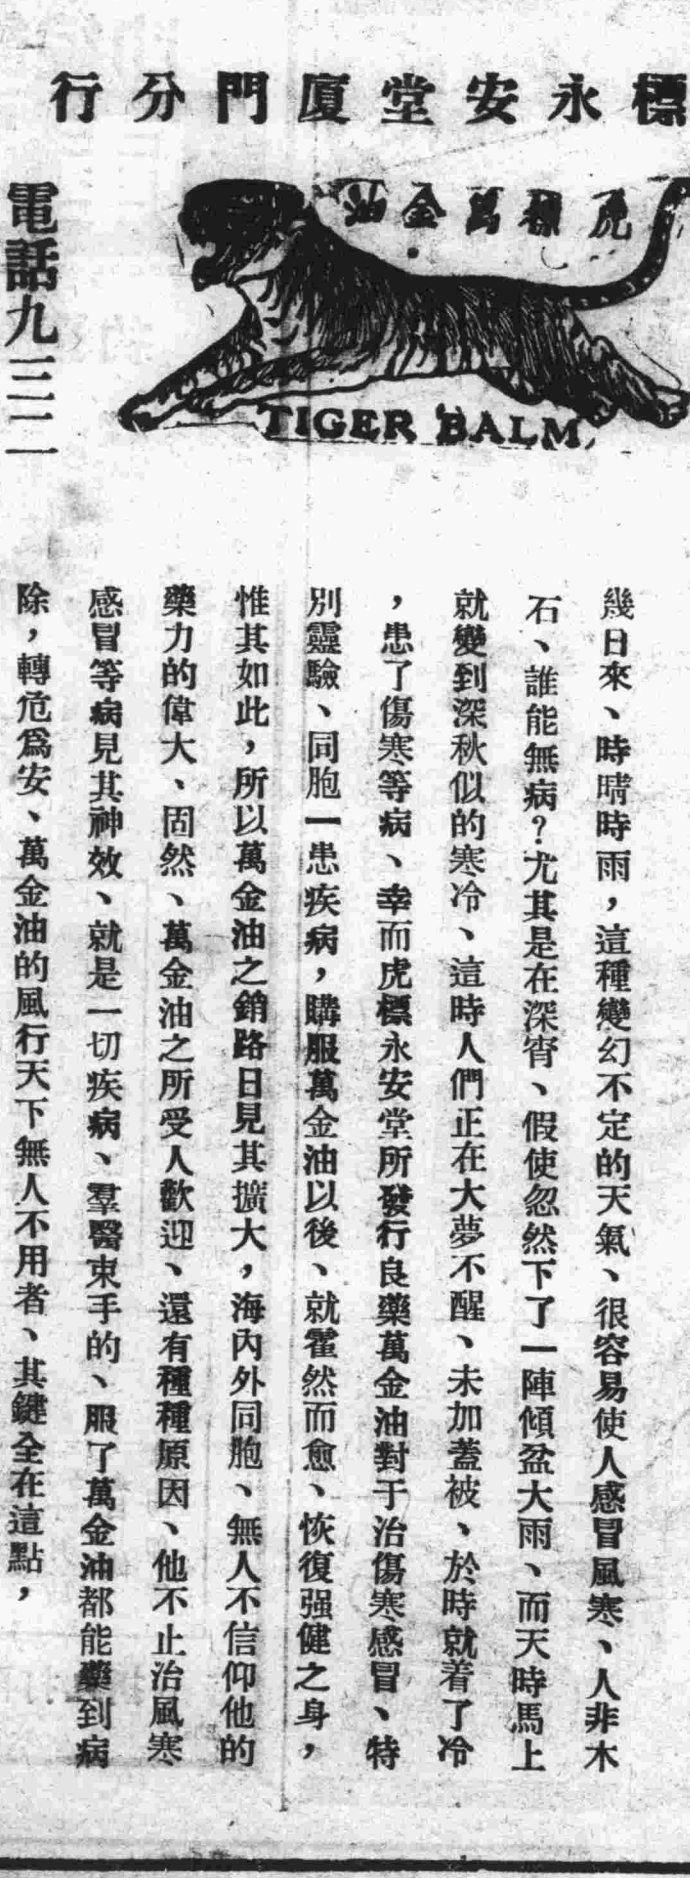 標永安堂厦門分行
虎標萬金油
TIGER BALM
電話九三二一
幾日來、時晴時雨，這種變幻不定的天氣、很容易使人感冒風寒、人非木
石、誰能無病？尤其是在深宵、假使忽然下了一陣傾盆大雨、而天時馬上
就變到深秋似的寒冷、這時人們正在大夢不醒、未加蓋被、於時就着了冷
，患了傷寒等病、幸而虎標永安堂所發行良藥萬金油對于治傷寒感冒、特
別靈驗、同胞一患疾病，購服萬金油以後、就霍然而愈、恢復强健之身，
惟其如此，所以萬金油之銷路日見其擴大，海內外同胞、無人不信仰他的
藥力的偉大、固然、萬金油之所受人歡迎、還有種種原因、他不止治風寒
感冒等病見其神效、就是一切疾病、羣醫束手的、服了萬金油都能藥到病
除，轉危爲安、萬金油的風行天下無人不用者、其鍵全在這點，